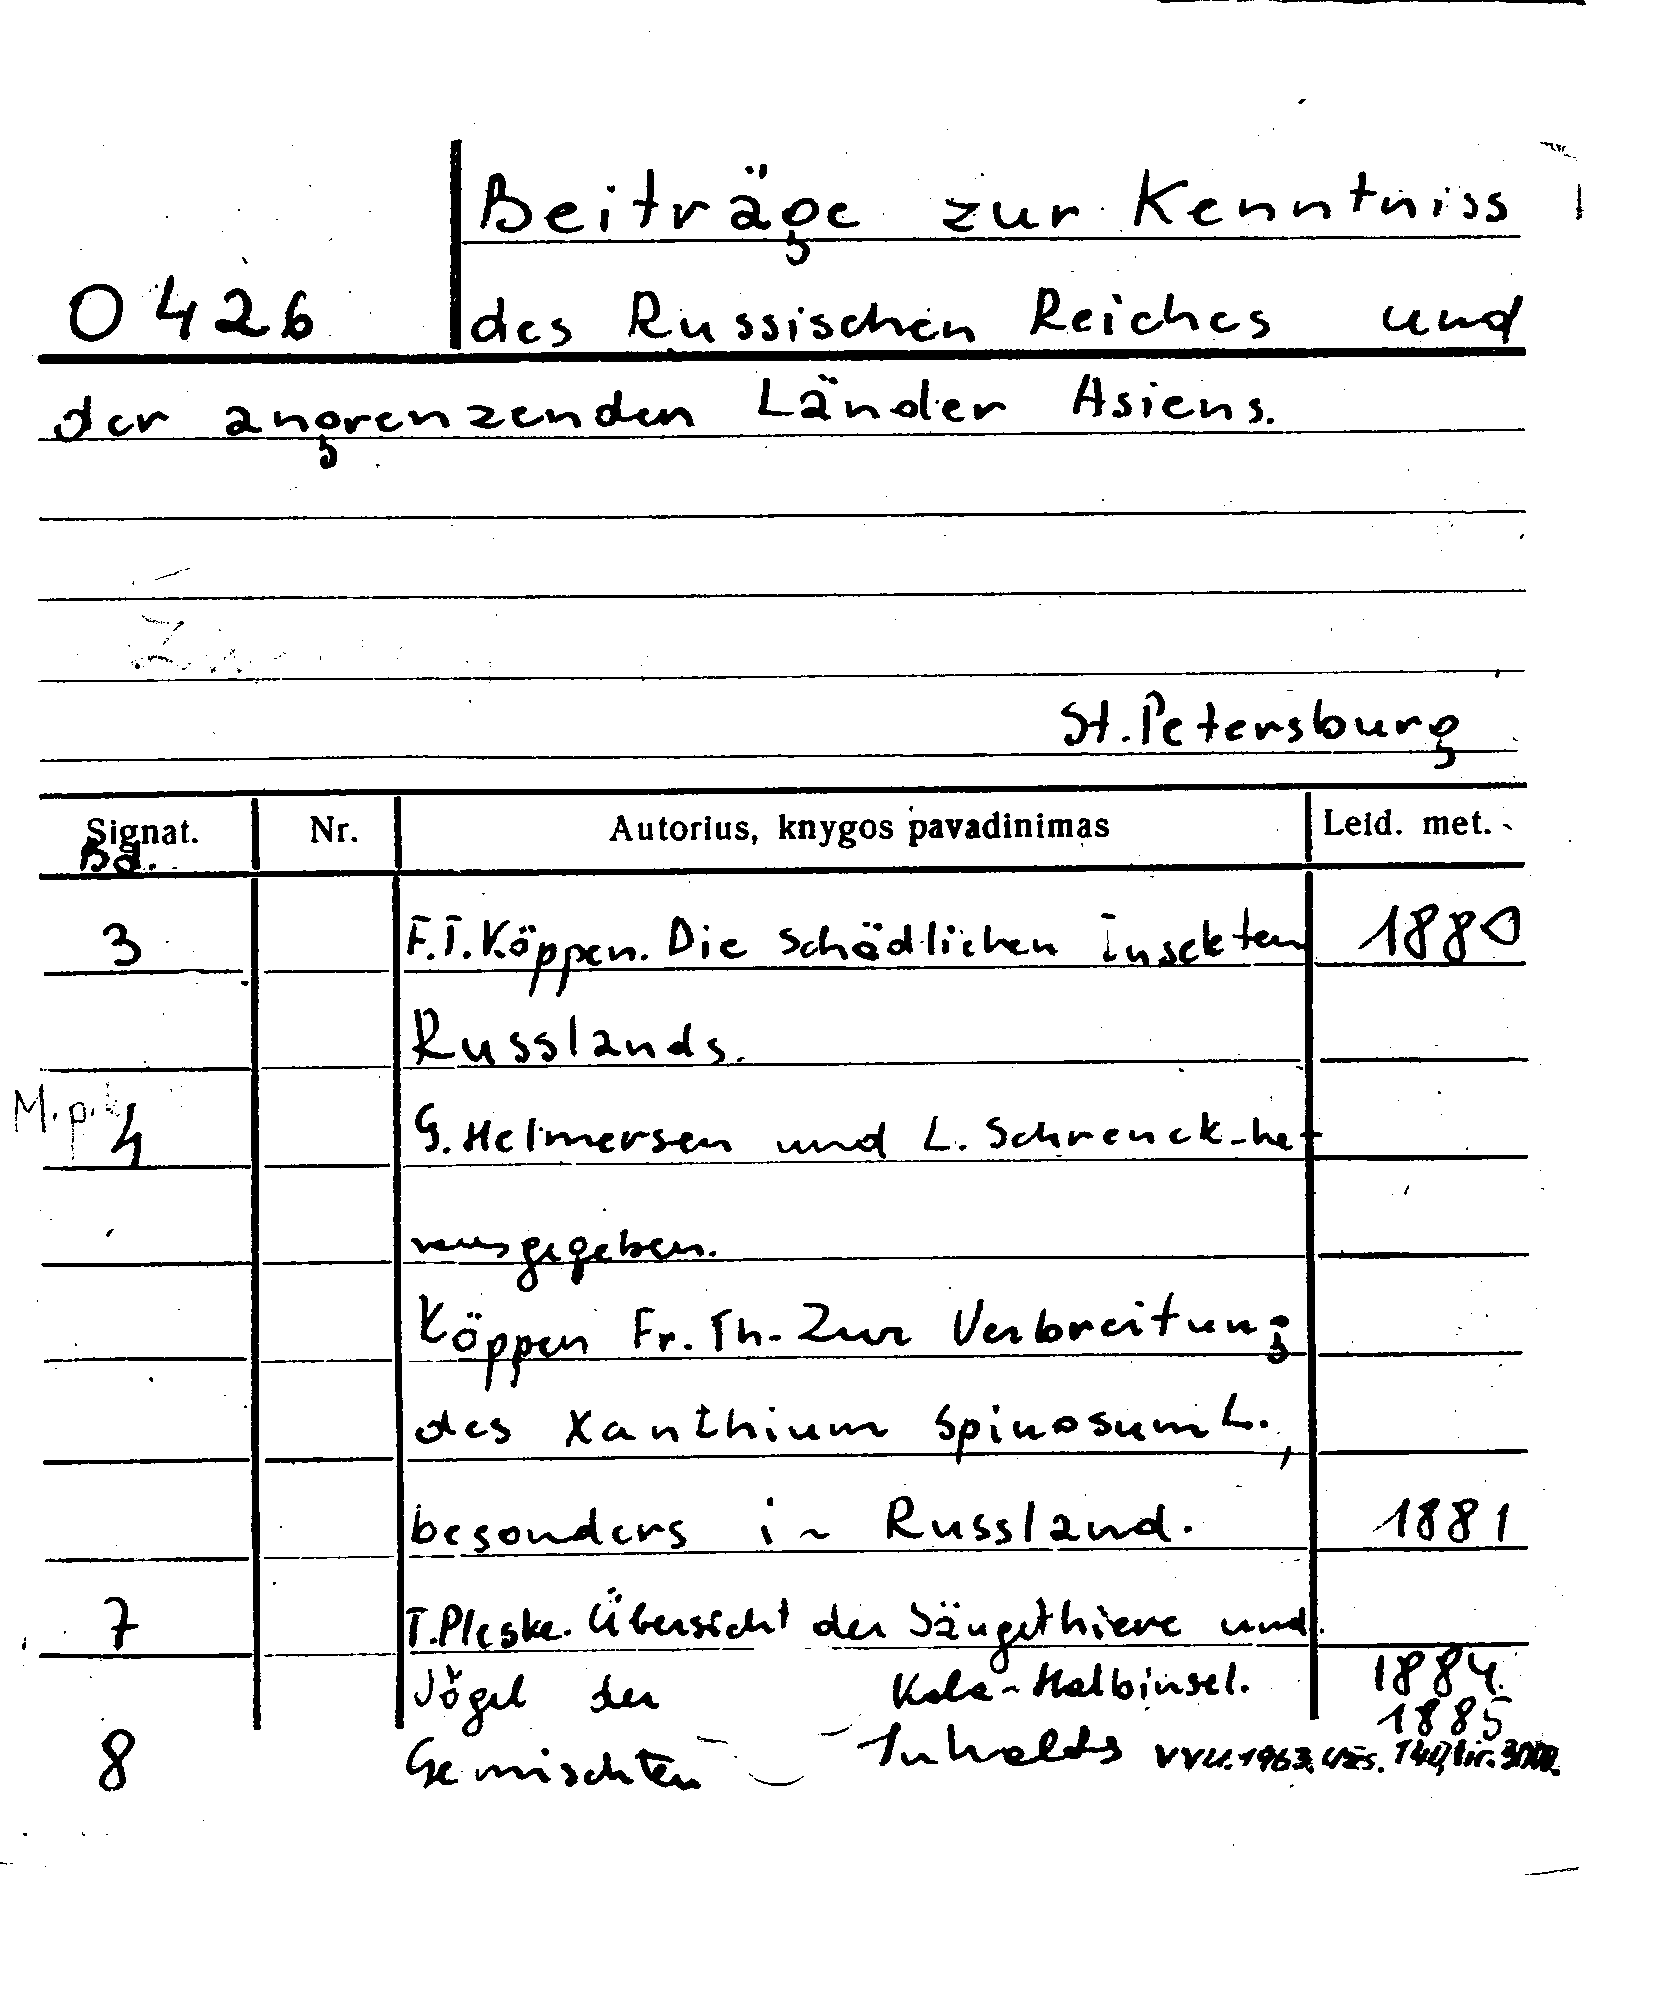 Beiträge zur Kenntniss
O 426 des Russischen Reiches und
der angrenzenden Länder Asiens.
St. Petersburg
Signat. Nr. Autorius, knygos pavadinimas Leid. met.
Bd.
3 F.T. Köppen. Die schädlichen Insekten 1880
Russlands.
M. p. k. 4 G. Helmersen und L. Schrenck - he-
rausgegeben.
Köppen Fr. Th- Zur Verbreitung
des Xanthium spinosum L.,
besonders in Russland. 1881
7 T. Pleske. Übersicht der Säugethiere und
Vögel der Kola-Halbinsel. 1884.
1885
8 Gemischten Inhalts VVU. 1963. užs. 140, tir. 3000.